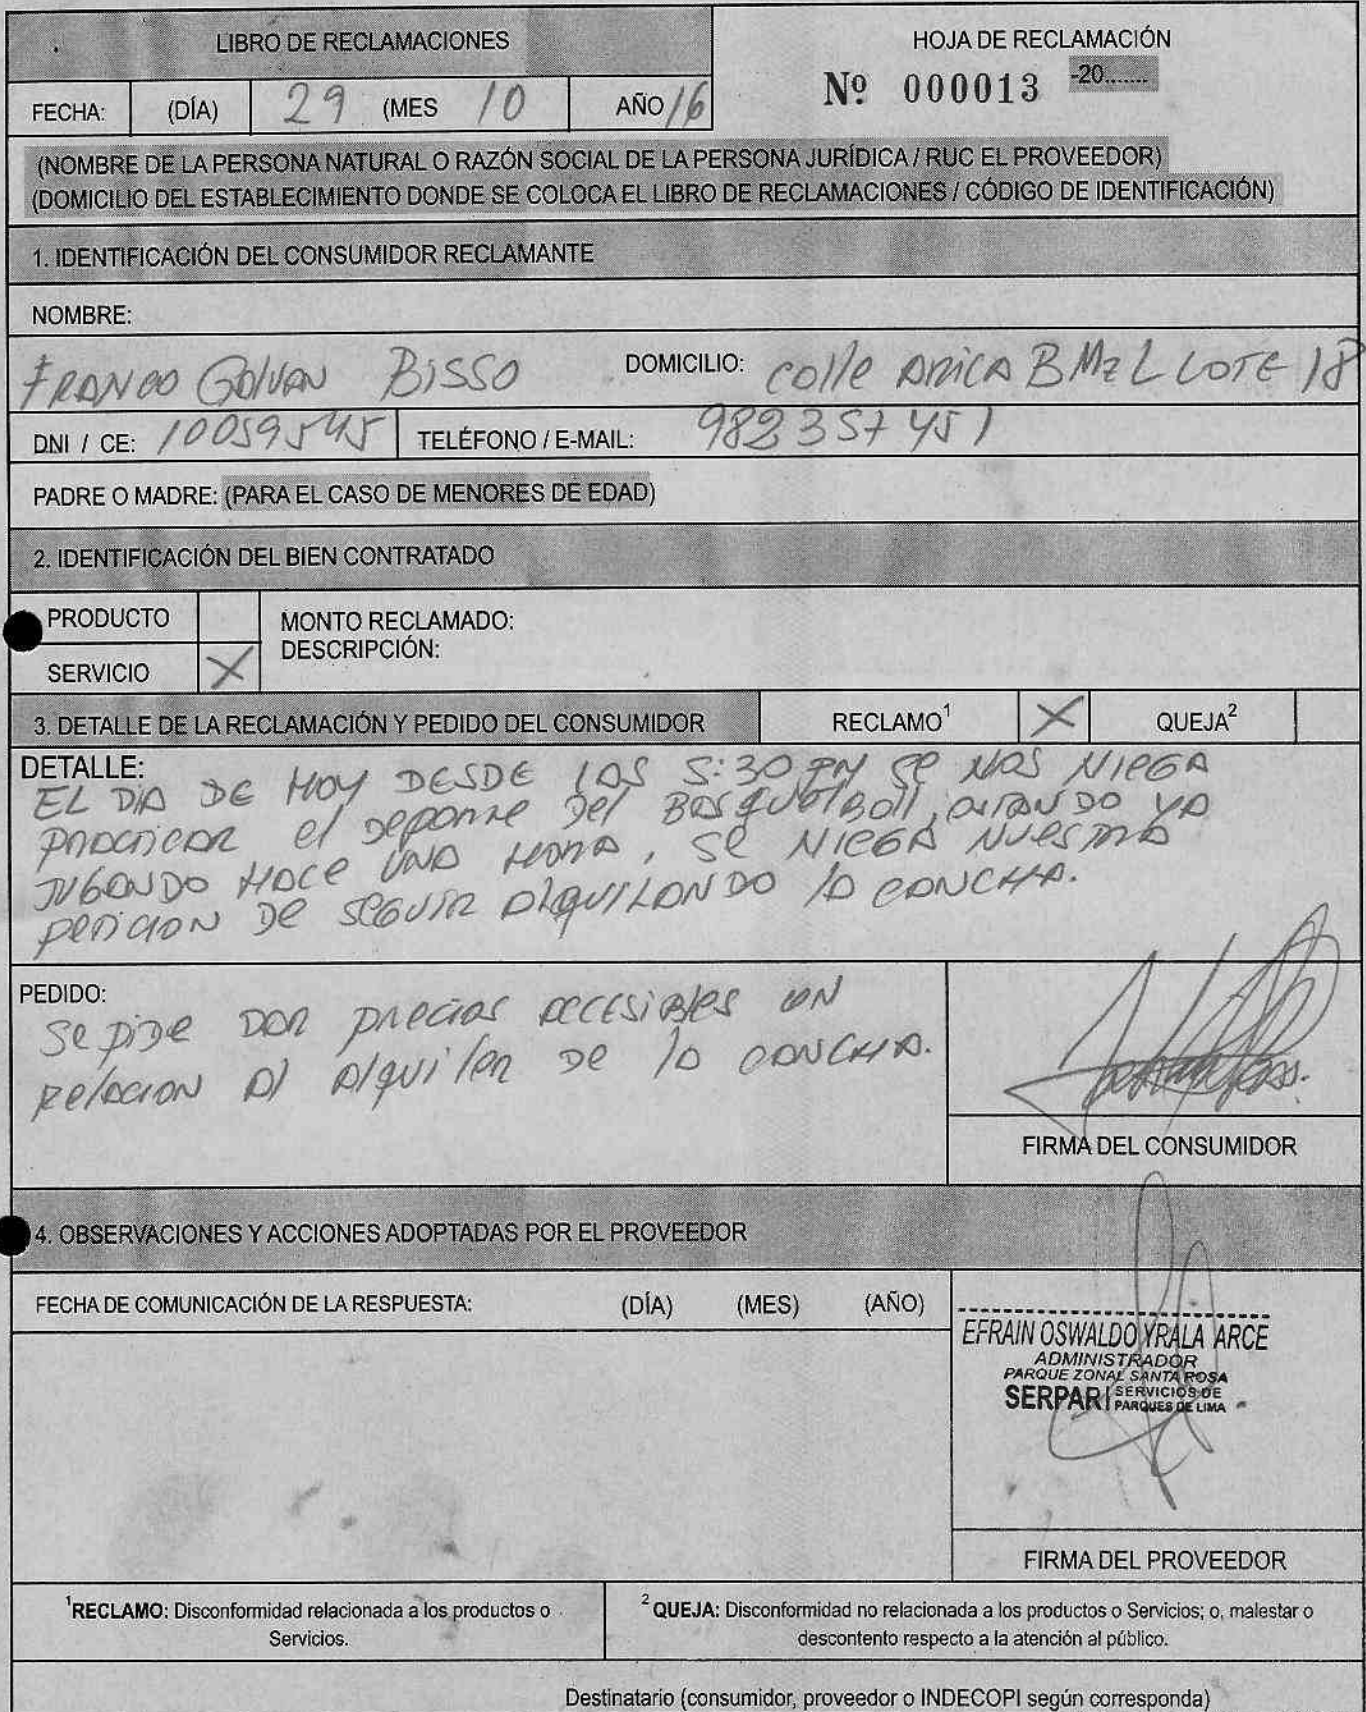 LIBRO DE RECLAMACIONES
HOJA DE RECLAMACIÓN
Nº 000013 -20.......
FECHA: (DÍA) 29 (MES 10 AÑO 16
(NOMBRE DE LA PERSONA NATURAL O RAZÓN SOCIAL DE LA PERSONA JURÍDICA / RUC EL PROVEEDOR)
(DOMICILIO DEL ESTABLECIMIENTO DONDE SE COLOCA EL LIBRO DE RECLAMACIONES / CÓDIGO DE IDENTIFICACIÓN)
1. IDENTIFICACIÓN DEL CONSUMIDOR RECLAMANTE
NOMBRE:
FRANCO GALVAN BISSO DOMICILIO: calle ARICA B MZ L LOTE 18
DNI / CE: 10059545 TELÉFONO / E-MAIL: 982357451
PADRE O MADRE: (PARA EL CASO DE MENORES DE EDAD)
2. IDENTIFICACIÓN DEL BIEN CONTRATADO
PRODUCTO
MONTO RECLAMADO:
DESCRIPCIÓN:
SERVICIO X
3. DETALLE DE LA RECLAMACIÓN Y PEDIDO DEL CONSUMIDOR RECLAMO¹ X QUEJA²
DETALLE:
EL DIA DE HOY DESDE LAS 5:30 PM SE NOS NIEGA
PRACTICAR el DEPORTE DEL BASQUETBOLL, CUANDO YA
JUGANDO HACE UNA HORA, SE NIEGA NUESTRA
PETICION DE SEGUIR ALQUILANDO LA CANCHA.
PEDIDO:
SE PIDE DAR PRECIOS ACCESIBLES EN
RELACION AL ALQUILER DE LA CANCHA.
FIRMA DEL CONSUMIDOR
4. OBSERVACIONES Y ACCIONES ADOPTADAS POR EL PROVEEDOR
FECHA DE COMUNICACIÓN DE LA RESPUESTA: (DÍA) (MES) (AÑO)
EFRAIN OSWALDO YRALA ARCE
ADMINISTRADOR
PARQUE ZONAL SANTA ROSA
SERPAR SERVICIOS DE
PARQUES DE LIMA
FIRMA DEL PROVEEDOR
¹RECLAMO: Disconformidad relacionada a los productos o
Servicios.
²QUEJA: Disconformidad no relacionada a los productos o Servicios; o, malestar o
descontento respecto a la atención al público.
Destinatario (consumidor, proveedor o INDECOPI según corresponda)